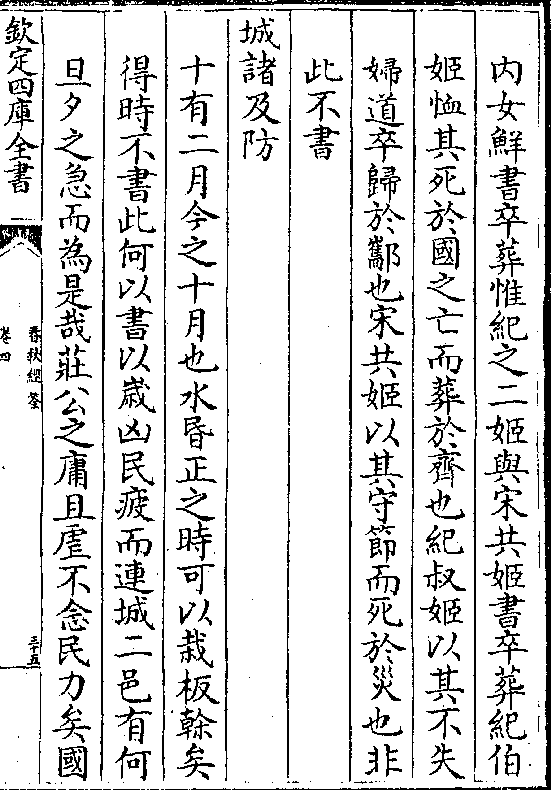 內女鮮書卒葬惟紀之二姬與宋共姬書卒葬紀伯
姬恤其死於國之亡而葬於齊也紀叔姬以其不失
婦道卒歸於酅也宋共姬以其守節而死於災也非
此不書
城諸及防
十有二月今之十月也水昏正之時可以栽板榦矣
得時不書此何以書以歲凶民疲而連城二邑有何
旦夕之急而為是哉莊公之庸且虐不念民力矣國
欽定四庫全書
春秋經筌
卷四
三十五